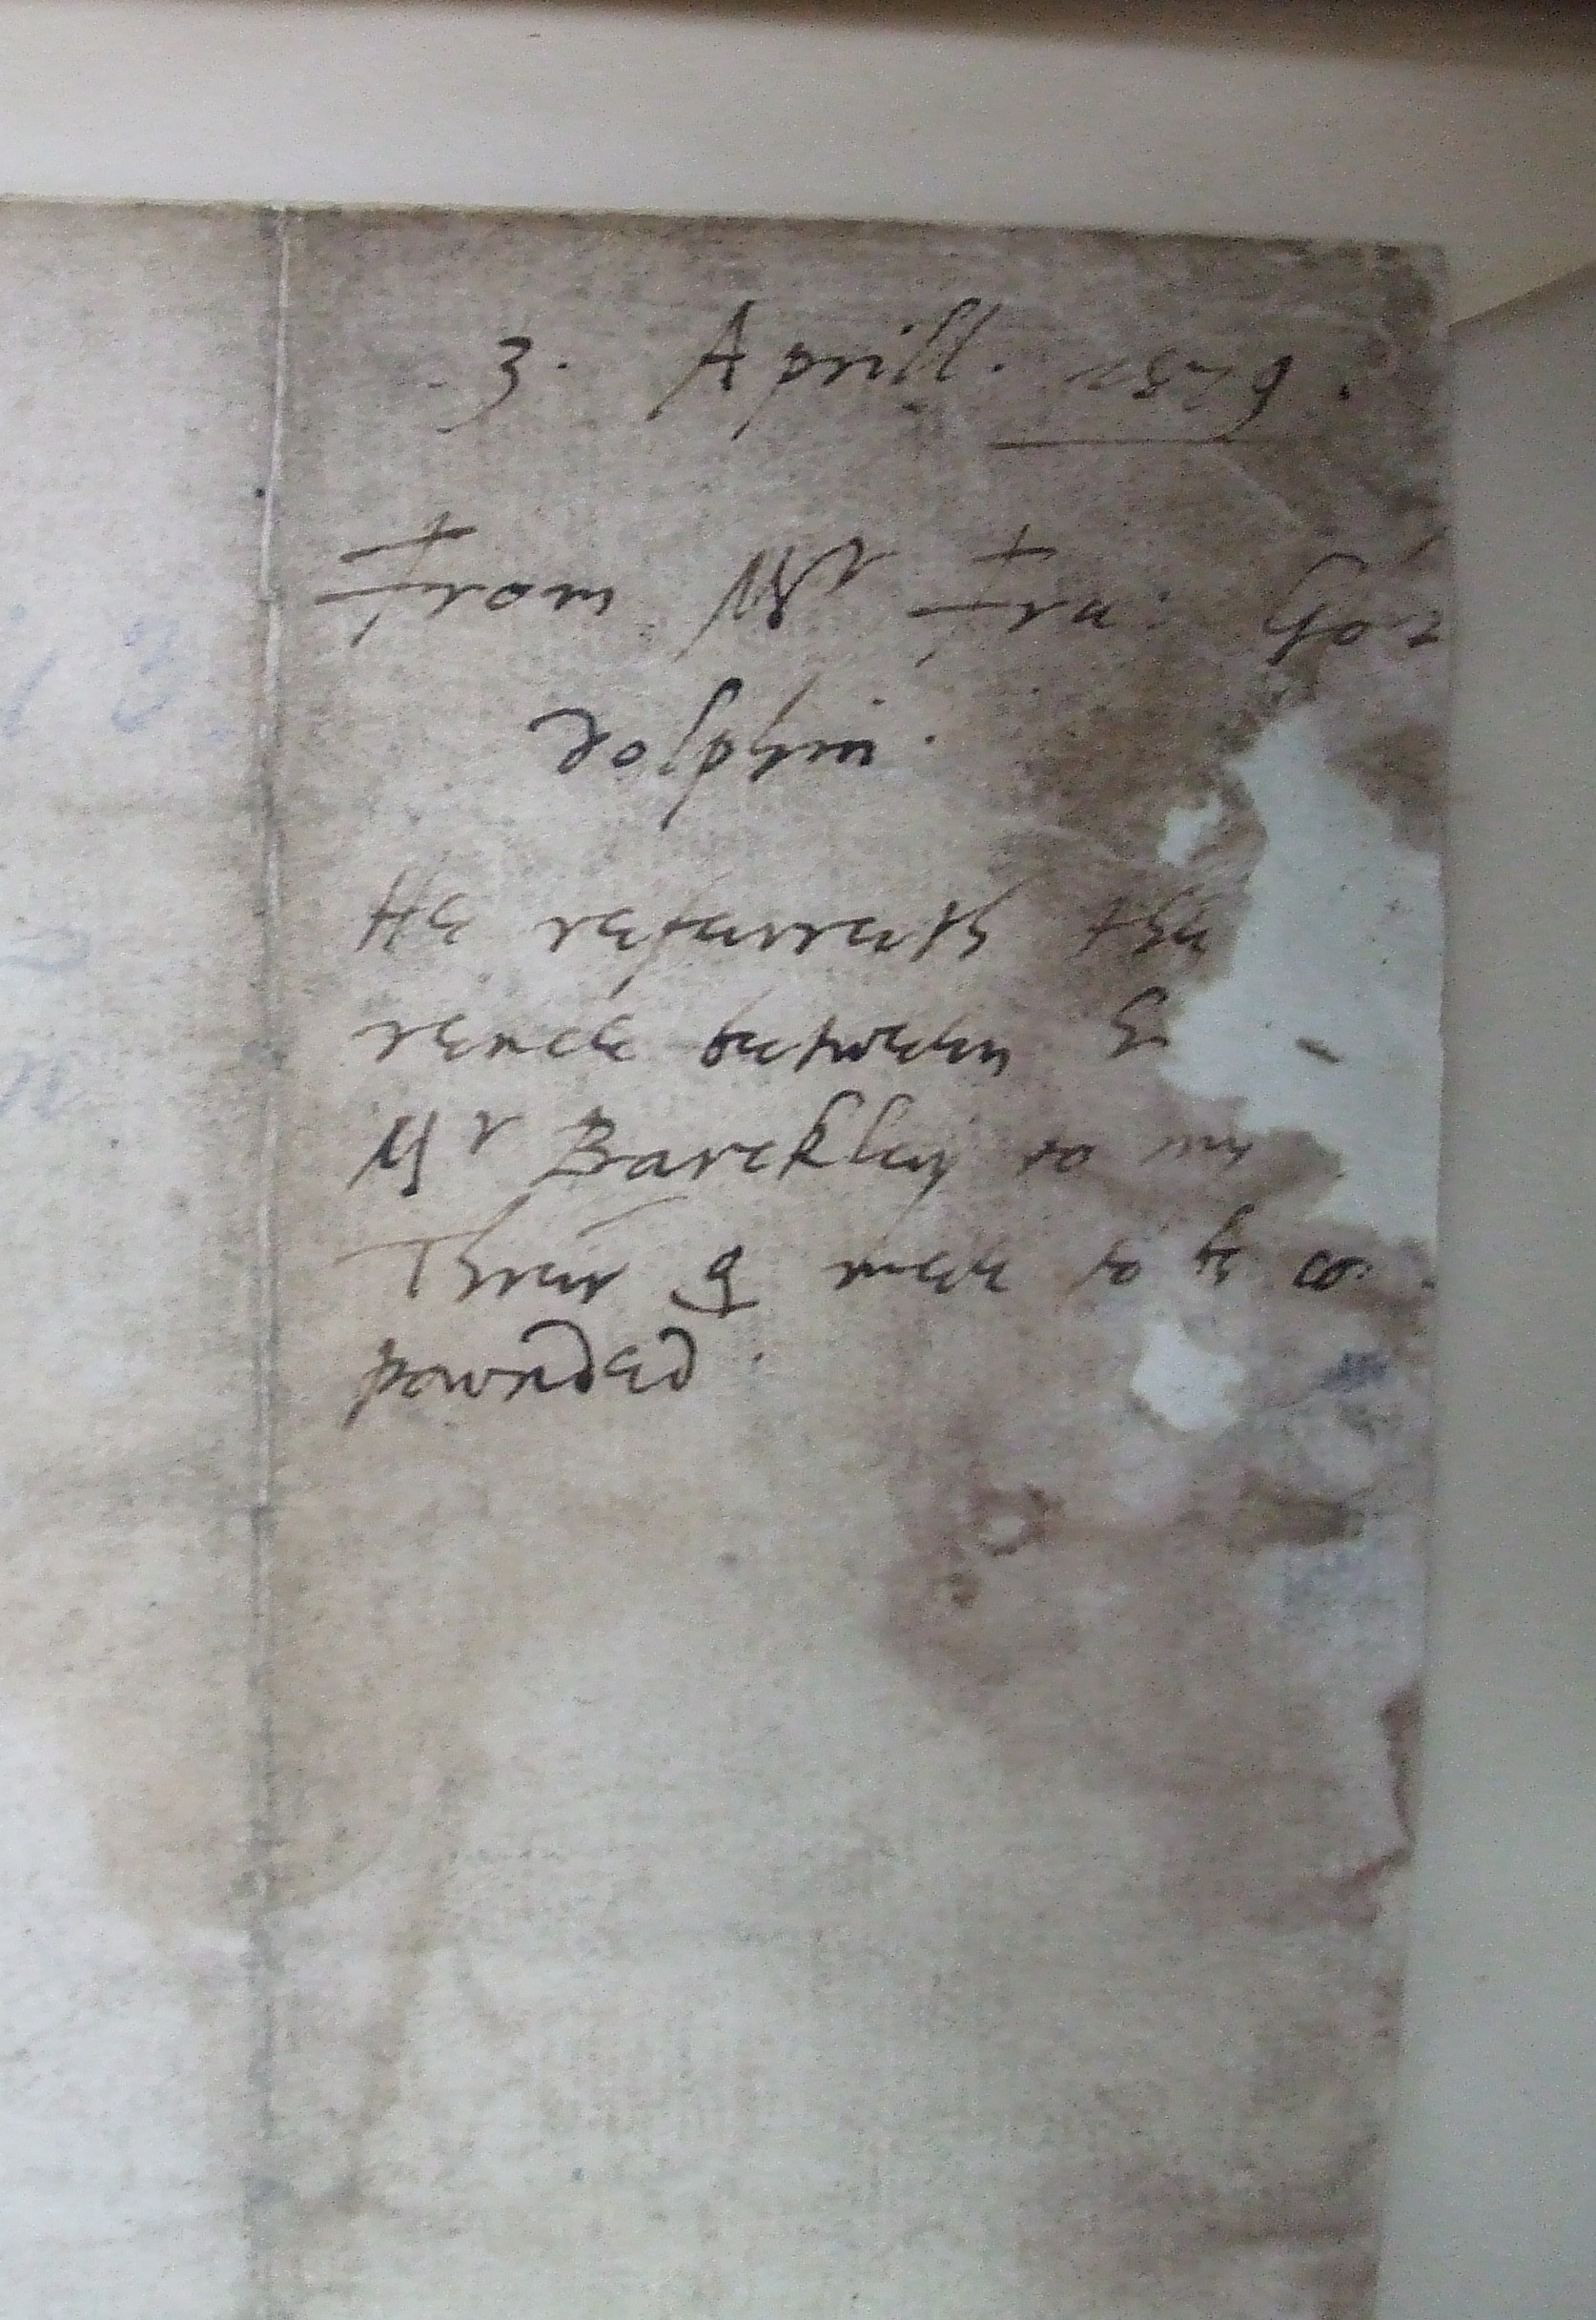 3. Aprill. 1579.
From Mr Fra: Go-
dolphin.
He referreth the
rence between h
Mr Barckley to my
Threr & mee to be co
pownded.